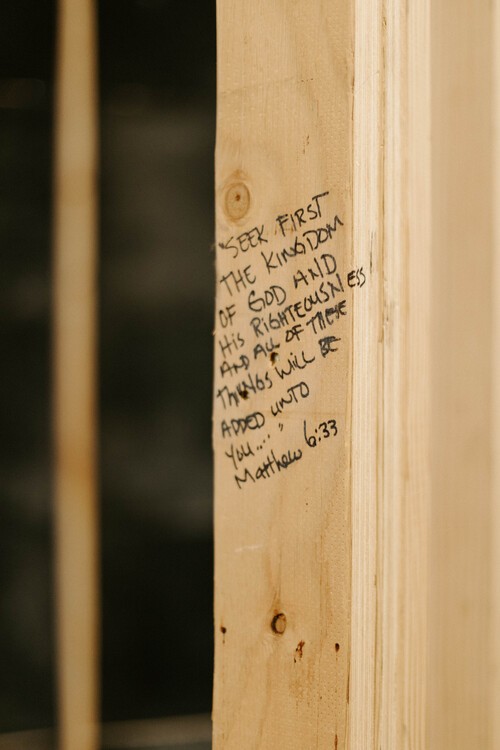 "SEEK FIRST
THE KINGDOM
OF GOD AND
HIS RIGHTEOUSNESS
AND ALL OF THESE
THINGS WILL BE
ADDED UNTO
YOU...."
Matthew 6:33